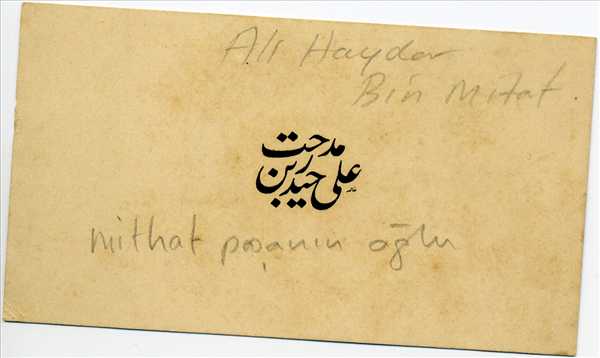 Ali Haydar
Bin Mitat.
علی حیدر بن مدحت
mithat paşanın oğlu